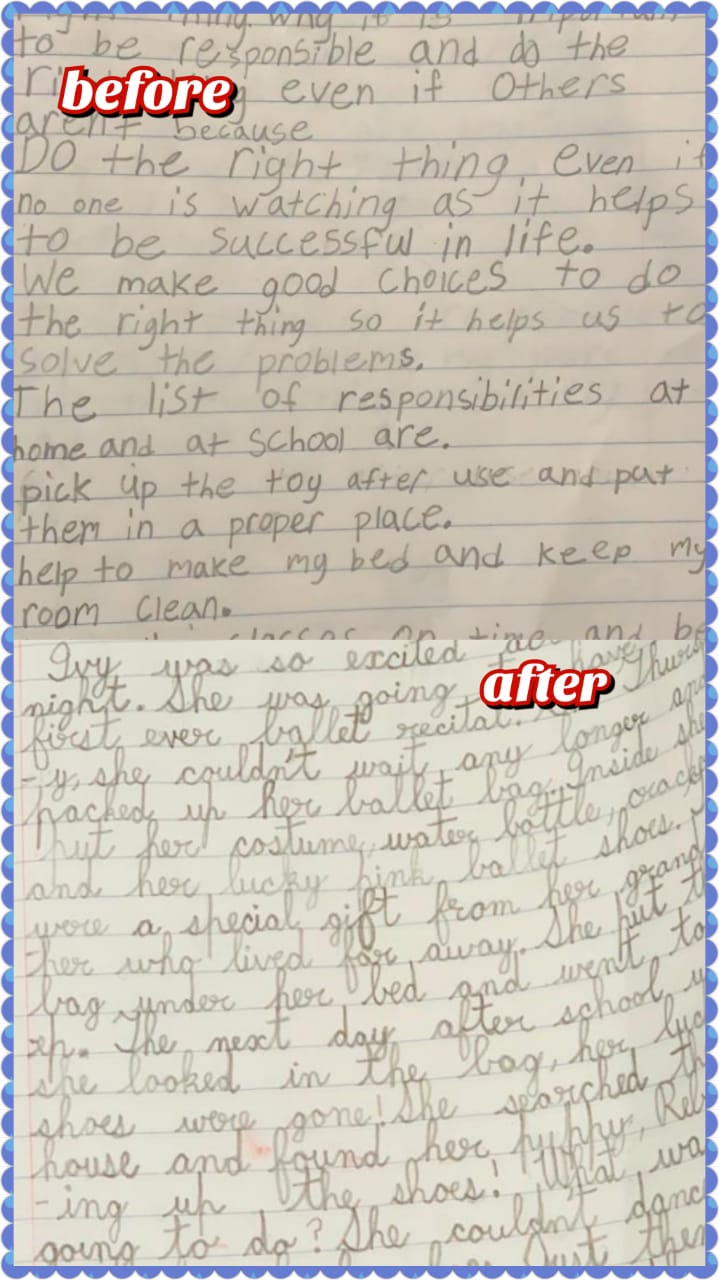 to be responsible and do the
before
even if others
aren't because
DO the right thing even if
no one is watching as it helps
to be successful in life.
We make good choices to do
the right thing so it helps us to
solve the problems.
The list of responsibilities at
home and at school are.
pick up the toy after use and put
them in a proper place.
help to make my bed and keep my
room clean.
on time and be
Ivy was so excited have
after
night. She was going
first ever ballet recital. Thurs
-y, she couldn't wait any longer and
packed up her ballet bag. Inside she
put her costume, water bottle,
and her lucky pink ballet shoes.
were a special gift from her grand
-her who lived far away. She put
bag under her bed and went to
The next day after school
she looked in the bag, her
shoes were gone! She searched
house and found her puppy,
-ing up the shoes! What
going to do? She couldn't
Just then